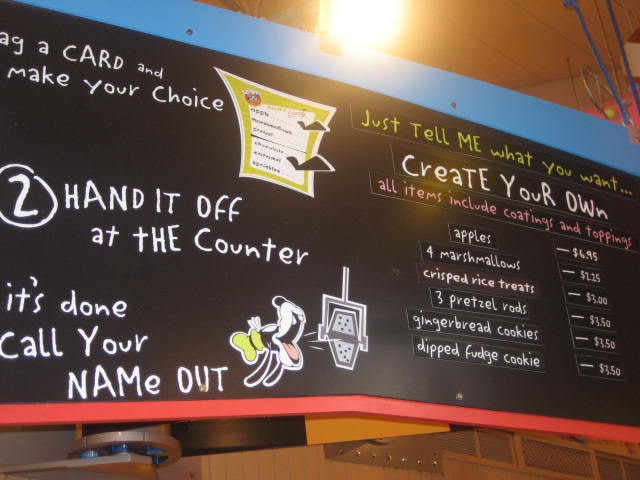 ag a CARD and
make your Choice
apple
marshmallows
pretzel
chocolate
caramel
sprinkles
2 HAND IT OFF
at tHE Counter
it's done
Call Your
NAMe OUT
Just TELL ME what you want...
CreaTE YouR OWn
all items include coatings and toppings
apples — $6.95
4 marshmallows — $2.25
crisped rice treats — $3.00
3 pretzel rods — $3.50
gingerbread cookies — $3.50
dipped fudge cookie — $3.50